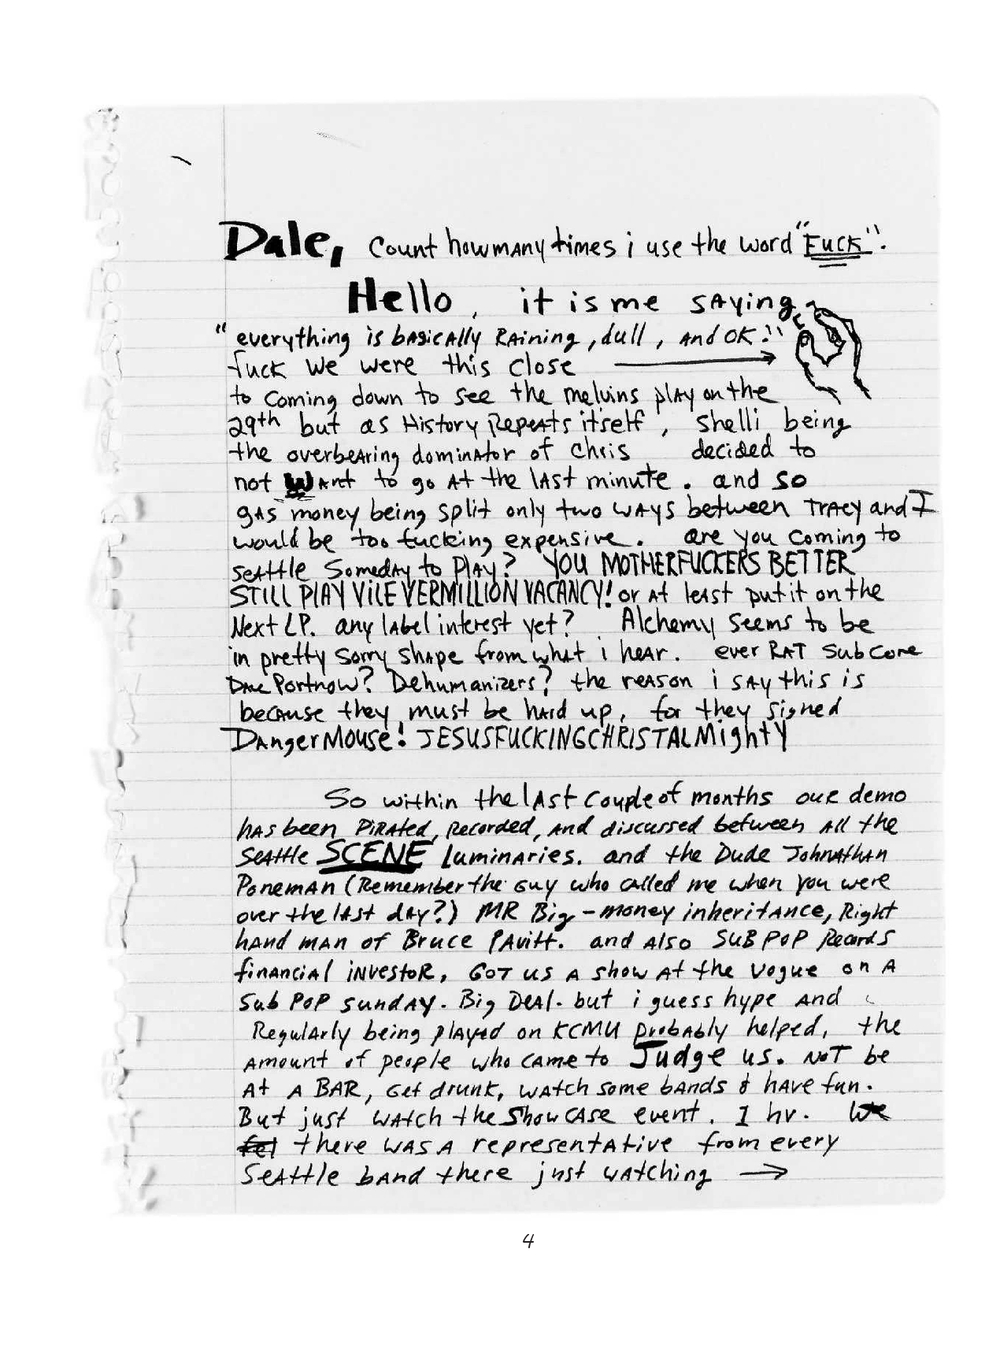 Dale, Count how many times i use the word "FUCK".
Hello, it is me saying
"everything is basically Raining, dull, and OK."
fuck We were this close
to coming down to see the melvins play on the
29th but as History Repeats itself, Shelli being
the overbearing dominator of Chris decided to
not Want to go At the last minute. and so
gas money being split only two ways between Tracy and I
would be too fucking expensive. are you coming to
seattle Someday to Play? YOU MOTHERFUCKERS BETTER
STILL PLAY VILE VERMILLION VACANCY! or at least put it on the
Next LP. any label interest yet? Alchemy seems to be
in pretty sorry shape from what i hear. ever RAT Sub Core
Portnow? Dehumanizers? the reason i say this is
because they must be hard up, for they signed
DangerMouse! JESUSFUCKINGCHRISTALMighty
So within the last couple of months our demo
has been Pirated, Recorded, and discussed between all the
Seattle SCENE luminaries. and the Dude Johnathan
Poneman (Remember the guy who called me when you were
over the last day?) MR Big-money inheritance, Right
hand man of Bruce Pavitt. and also SUB POP Records
financial investor, GOT us a show at the Vogue on A
Sub POP Sunday. Big Deal. but i guess hype and
Regularly being played on KCMU probably helped, the
amount of people who came to Judge us. NOT be
At A BAR, Get drunk, watch some bands & have fun.
But just watch the Showcase event. 1 hr. We
fel there was a representative from every
Seattle band there just watching →
4